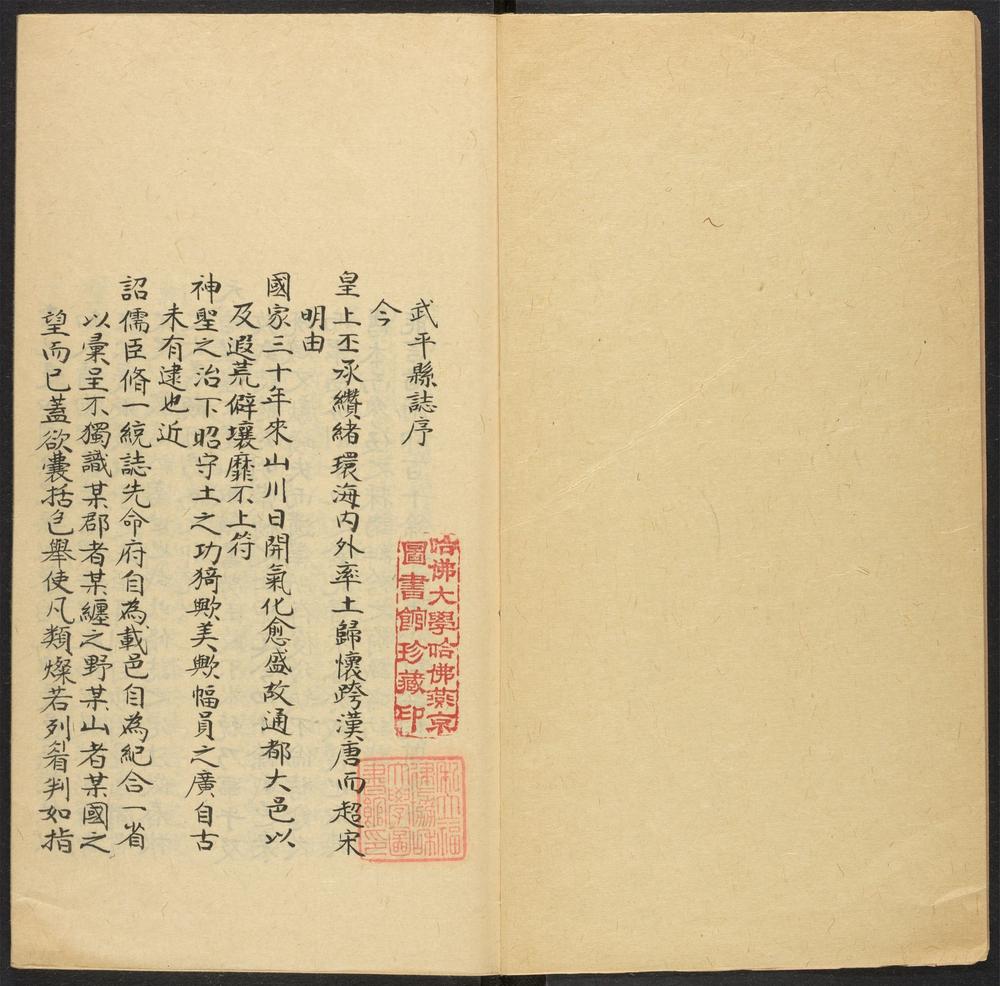 武平縣誌序
今
皇上丕承纘緒環海内外率土歸懷跨漢唐而超宋
明由
國家三十年來山川日開氣化愈盛故通都大邑以
及遐荒僻壤靡不上符
神聖之治下昭守土之功猗歟美歟幅員之廣自古
未有逮也近
詔儒臣脩一統誌先命府自為載邑自為紀合一省
以彙呈不獨識某郡者某纏之野某山者某國之
望而已蓋欲囊括包舉使凡類燦若列眉判如指
哈佛大學哈佛燕京
圖書館珍藏印
私立福
建協和
大學圖
書館印